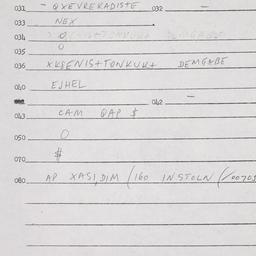 031 - QXEVREKADISTE 032 -
033 NEX
034 O
035 O
036 XKEENIS+TONKUK+ DEMGABE
040 EJHEL
042 -
043 CAM QAP $
050 O
070 #
080 AP XASI,DIM /160 INSTOLN (/0070